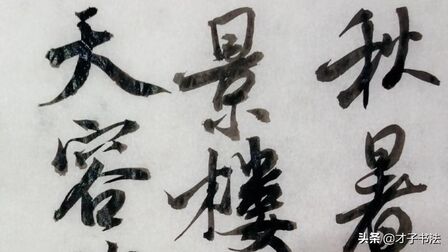 秋暑
景楼
天容
头条 @才子书法